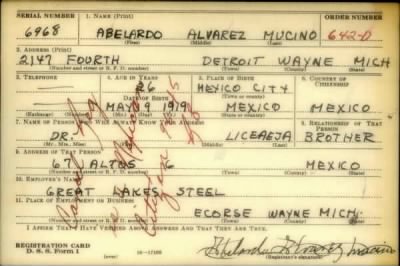 SERIAL NUMBER 1. NAME (Print) ORDER NUMBER
6968 ABELARDO ALVAREZ MUCINO 642-D
(First) (Middle) (Last)
2. ADDRESS (Print)
2147 FOURTH DETROIT WAYNE MICH
(Number and street or R. F. D. number) (Town) (County) (State)
3. TELEPHONE 4. AGE IN YEARS 5. PLACE OF BIRTH 6. COUNTRY OF CITIZENSHIP
26 MEXICO CITY
DATE OF BIRTH (Town or county)
MAY 9 1919 MEXICO MEXICO
(Exchange) (Number) (Mo.) (Day) (Yr.) (State or country)
7. NAME OF PERSON WHO WILL ALWAYS KNOW YOUR ADDRESS 8. RELATIONSHIP OF THAT PERSON
DR. BROTHER
(Mr., Mrs., Miss) (First) (Middle) (Last)
9. ADDRESS OF THAT PERSON
67 ALTOS 6 MEXICO
(Number and street or R. F. D. number) (Town) (County) (State)
10. EMPLOYER'S NAME
GREAT LAKES STEEL
11. PLACE OF EMPLOYMENT OR BUSINESS
ECORSE WAYNE MICH.
(Number and street or R. F. D. number) (Town) (County) (State)
I AFFIRM THAT I HAVE VERIFIED ABOVE ANSWERS AND THAT THEY ARE TRUE.
REGISTRATION CARD
D. S. S. Form 1 16-17105 Abelardo Alvarez Mucino